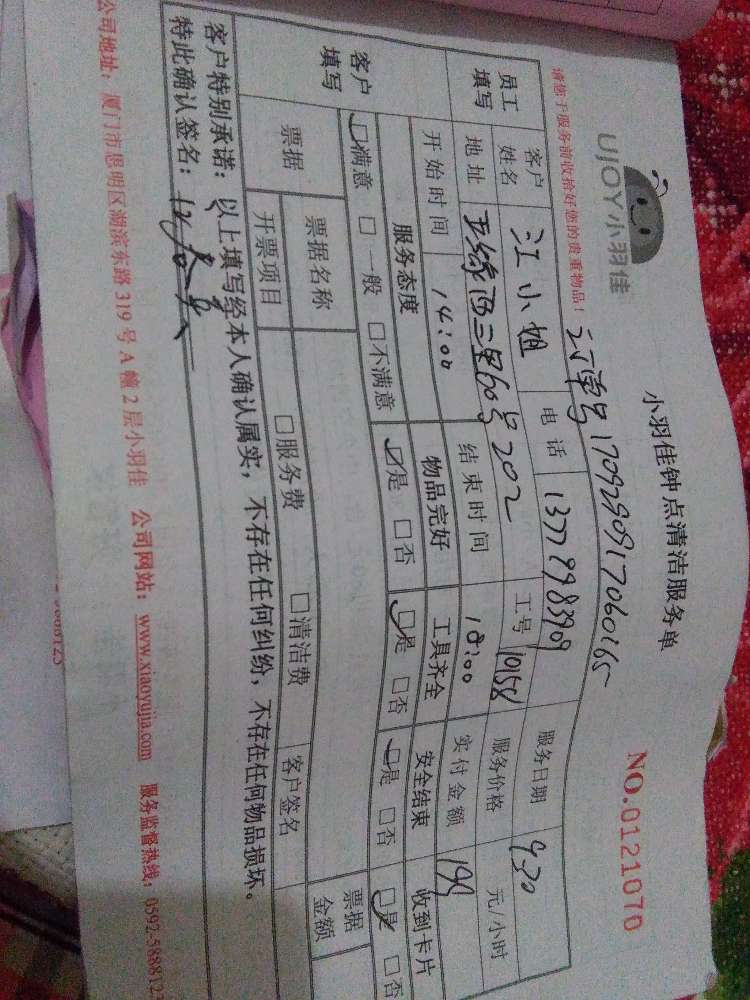 UJOY小羽佳
小羽佳钟点清洁服务单
NO.0121070
请您于服务前收拾好您的贵重物品！
订单号1709290917060165
员工填写 客户姓名 江小姐 电话 13779983909 服务日期 9.30
地址 60号202 工号 10158 服务价格 元/小时
开始时间 14:00 结束时间 18:00 实付金额 199
客户填写 服务态度 物品完好 工具齐全 安全结束 收到卡片
☑满意 □一般 □不满意 ☑是 □否 ☑是 □否 ☑是 □否 ☑是 □否
票据 票据名称 票据金额
开票项目 □服务费 □清洁费 客户签名
客户特别承诺：以上填写经本人确认属实，不存在任何纠纷，不存在任何物品损坏。
特此确认签名：
公司地址：厦门市思明区湖滨东路319号A幢2层小羽佳 公司网站：www.xiaoyujia.com 服务监督热线：0592-5888123